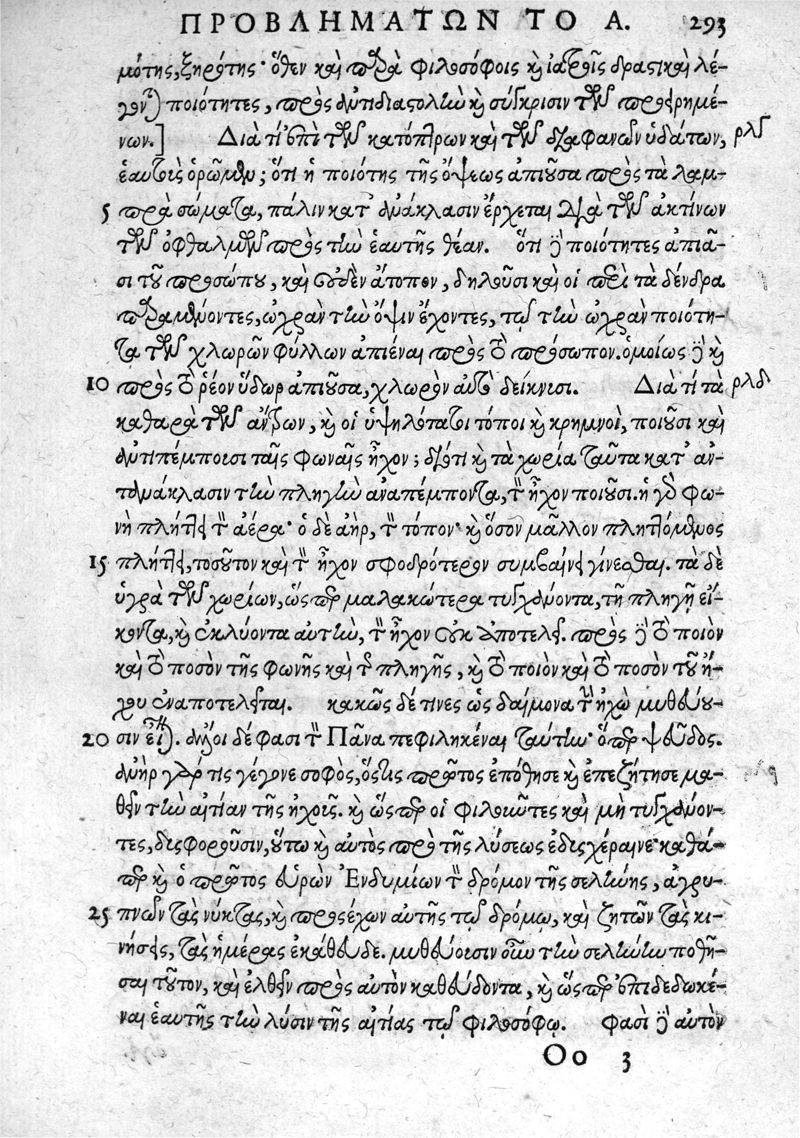 ΠΡΟΒΛΗΜΑΤΩΝ ΤΟ Α. 293
μότης, ξηρότης· ὅθεν καὶ παρὰ φιλοσόφοις καὶ ἰατροῖς δραστικαὶ λέ-
γονται ποιότητες, πρὸς ἀντιδιαστολὴν καὶ σύγκρισιν τῶν προειρημέ-
νων.] Διὰ τί ἐπὶ τῶν κατόπτρων καὶ τῶν διαφανῶν ὑδάτων, ρλγ
ἑαυτοὺς ὁρῶμεν; ὅτι ἡ ποιότης τῆς ὄψεως ἀπιοῦσα πρὸς τὰ λαμ-
5 πρὰ σώματα, πάλιν κατ' ἀνάκλασιν ἔρχεται διὰ τῶν ἀκτίνων
τῶν ὀφθαλμῶν πρὸς τὴν ἑαυτῆς θέαν. ὅτι δὲ ποιότητες ἀπιᾶ-
σι τοῦ προσώπου, καὶ οὐδὲν ἄτοπον, δηλοῦσι καὶ οἱ περὶ τὰ δένδρα
παραμένοντες, ὠχρὰν τὴν ὄψιν ἔχοντες, τῷ τὴν ὠχρὰν ποιότη-
τα τῶν χλωρῶν φύλλων ἀπιέναι πρὸς τὸ πρόσωπον. ὁμοίως δὲ καὶ
10 πρὸς τὸ ῥέον ὕδωρ ἀπιοῦσα, χλωρὸν αὐτὸ δείκνυσι. Διὰ τί τὰ ρλδ
καθαρὰ τῶν ἄντρων, καὶ οἱ ὑψηλότατοι τόποι καὶ κρημνοὶ, ποιοῦσι καὶ
ἀντιπέμπουσι ταῖς φωναῖς ἦχον; διότι καὶ τὰ χωρία ταῦτα κατ' ἀν-
τανάκλασιν τὴν πληγὴν ἀναπέμποντα, τὸν ἦχον ποιοῦσι. ἡ γὰρ φω-
νὴ πλήττει τὸν ἀέρα· ὁ δὲ ἀὴρ, τὸν τόπον· καὶ ὅσον μᾶλλον πληττόμενος
15 πλήττει, τοσοῦτον καὶ τὸν ἦχον σφοδρότερον συμβαίνει γίνεσθαι. τὰ δὲ
ὑγρὰ τῶν χωρίων, ὥσπερ μαλακώτερα τυγχάνοντα, τῇ πληγῇ εἴ-
κοντα, καὶ ἐκλύοντα αὐτὴν, τὸν ἦχον οὐκ ἀποτελεῖ. πρὸς δὲ τὸ ποιὸν
καὶ τὸ ποσὸν τῆς φωνῆς καὶ τῆς πληγῆς, καὶ τὸ ποιὸν καὶ τὸ ποσὸν τοῦ ἤ-
χου ἐναποτελεῖται. κακῶς δέ τινες ὡς δαίμονα τὴν ἠχὼ μυθεύου-
20 σιν εἶναι. ἔνιοι δέ φασι τὸν Πᾶνα πεφιληκέναι ταύτην· ὅπερ ψεῦδος.
ἀνὴρ γάρ τις γέγονε σοφὸς, ὅστις πρῶτος ἐπόθησε καὶ ἐπεζήτησε μα-
θεῖν τὴν αἰτίαν τῆς ἠχοῦς. καὶ ὥσπερ οἱ φιλοῦντες καὶ μὴ τυγχάνον-
τες, δυσφοροῦσιν, οὕτω καὶ αὐτὸς πρὸ τῆς λύσεως ἐδυσχέραινε· καθά-
περ καὶ ὁ πρῶτος εὑρὼν Ἐνδυμίων τὸν δρόμον τῆς σελήνης, ἀγρυ-
25 πνῶν τὰς νύκτας, καὶ προσέχων αὐτῆς τῷ δρόμῳ, καὶ ζητῶν τὰς κι-
νήσεις, τὰς ἡμέρας ἐκάθευδε. μυθεύουσιν οὖν τὴν σελήνην ποθῆ-
σαι τοῦτον, καὶ ἐλθεῖν πρὸς αὐτὸν καθεύδοντα, καὶ ὥσπερ ἐπιδεδωκέ-
ναι ἑαυτῆς τὴν λύσιν τῆς αἰτίας τῷ φιλοσόφῳ. φασὶ δὲ αὐτὸν
Oo 3